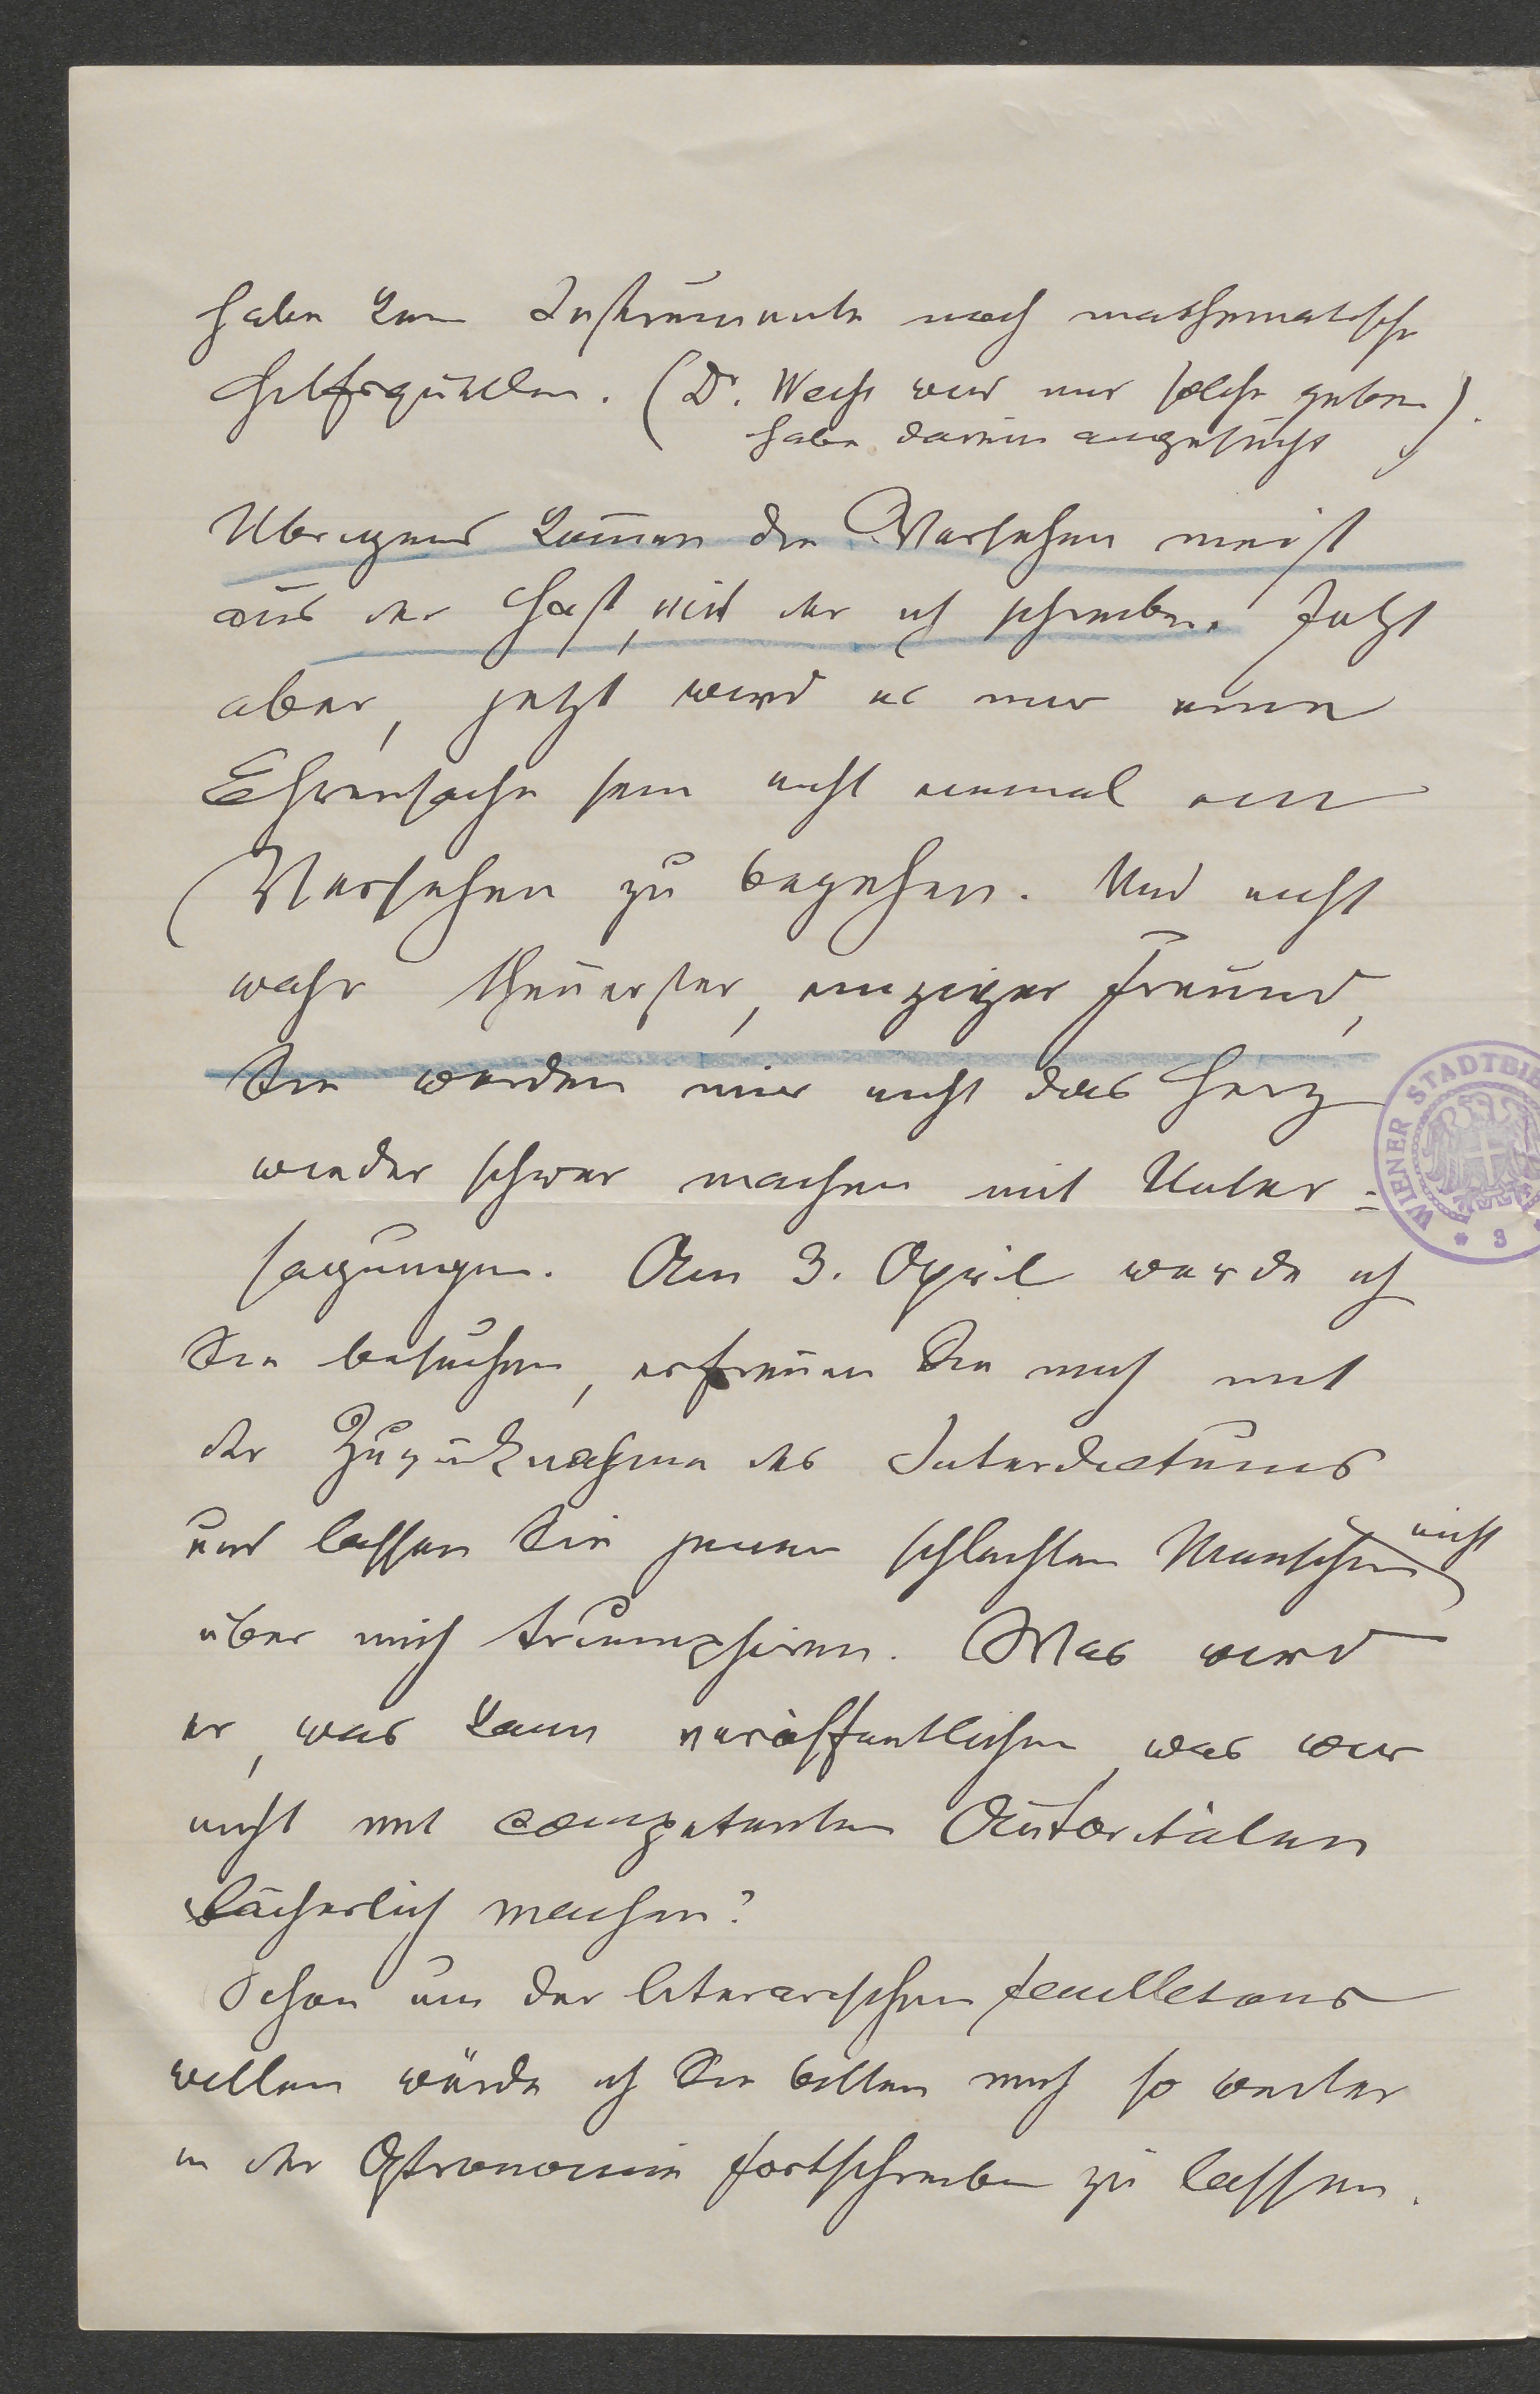 habe kein Instrumente noch mathematische
Hilfsquellen. (Dr. Weiß wird mir solche geben)
habe darum angesucht
Übrigens kommen die Versehen meist
aus der Hast, mit der ich schreibe. Jetzt
aber, jetzt wird es mir eine
Ehrensache sein nicht einmal ein
Versehen zu begehen. Und nicht
wahr theuerster, einziger Freund,
Sie werden mir nicht das Herz
wieder schwer machen mit Unter=
sagungen. Am 3. April werde ich
Sie besuchen, erfreuen Sie mich mit
der Zurücknahme des Interdictums
und lassen Sie jenen schlechten Menschen nicht
über mich triumphiren. Was wird
er, was kann veröffentlichen, was wir
nicht mit competenten Autoritäten
lächerlich machen?
Schon um der literarischen Feuilletons
willen würde ich Sie bitten mich so weiter
in der Astronomie fortschreiben zu lassen.
WIENER STADTBI
* 3 *